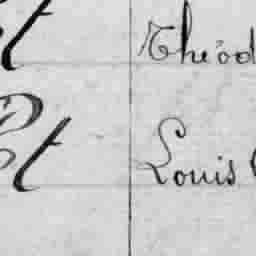 t Théod
Pt Louis